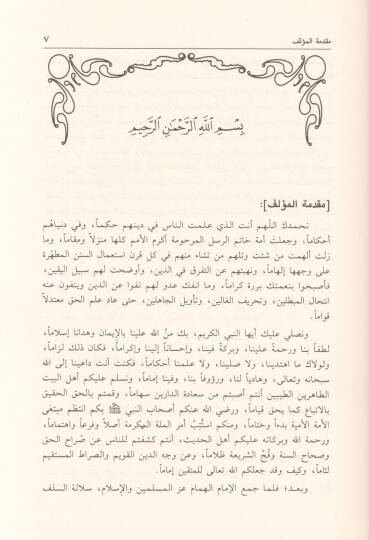 مقدمة المؤلف ٧
بِسْمِ اللَّهِ الرَّحْمَٰنِ الرَّحِيمِ
[مقدمة المؤلف]:
نحمدك اللّهم أنت الذي علمت الناس في دينهم حكماً، وفي دنياهم
أحكاماً، وجعلت أمة خاتم الرسل المرحومة أكرم الأمم كلها منزلاً ومقاماً، وما
زلت ألهمت من شئت وتلهم من تشاء منهم في كل قرن استعمال السنن المطهّرة
على وجهها إلهاماً، ونهيتهم عن التفرق في الدين، وأوضحت لهم سبيل اليقين،
فأصبحوا بنعمتك بررة كراماً، وما انفك عدو لهم نفوا عن الدين وينفون عنه
انتحال المبطلين، وتحريف الغالين، وتأويل الجاهلين، حتى عاد علم الحق معتدلاً
قواماً.
ونصلي عليك أيها النبي الكريم، بك منَّ الله علينا بالإيمان وهدانا إسلاماً،
لطفاً بنا ورحمةً علينا، وبركةً فينا، وإحساناً إلينا وإكراماً، فكان ذلك لزاماً،
ولولاك ما اهتدينا، ولا صلينا، ولا علمنا أحكاماً، فكنت أنت داعينا إلى الله
سبحانه وتعالى، وهادياً لنا، ورؤوفاً بنا، وفينا إماماً، ونسلم عليكم أهل البيت
الطاهرين الطيبين أنتم أصبتم من سعادة الدارين سهاماً، وقمتم بالحق الحقيق
بالاتباع كما يحق قياماً، ورضي الله عنكم أصحاب النبي ﷺ بكم انتظم مبتغى
الأمة الأمية بدءاً وختاماً، ومنكم استُتِبَّ أمر الملة المكرمة أصلاً وفرعاً واهتماماً،
ورحمة الله وبركاته عليكم أهل الحديث، أنتم كشفتم للناس عن صُراح الحق
وصحاح السنة وقُحِّ الشريعة ظلاماً، وعن وجه الدين القويم والصراط المستقيم
لثاماً، وكيف وقد جعلكم الله تعالى للمتقين إماماً.
وبعد؛ فلما جمع الإمام الهمام عز المسلمين والإسلام، سلالة السلف